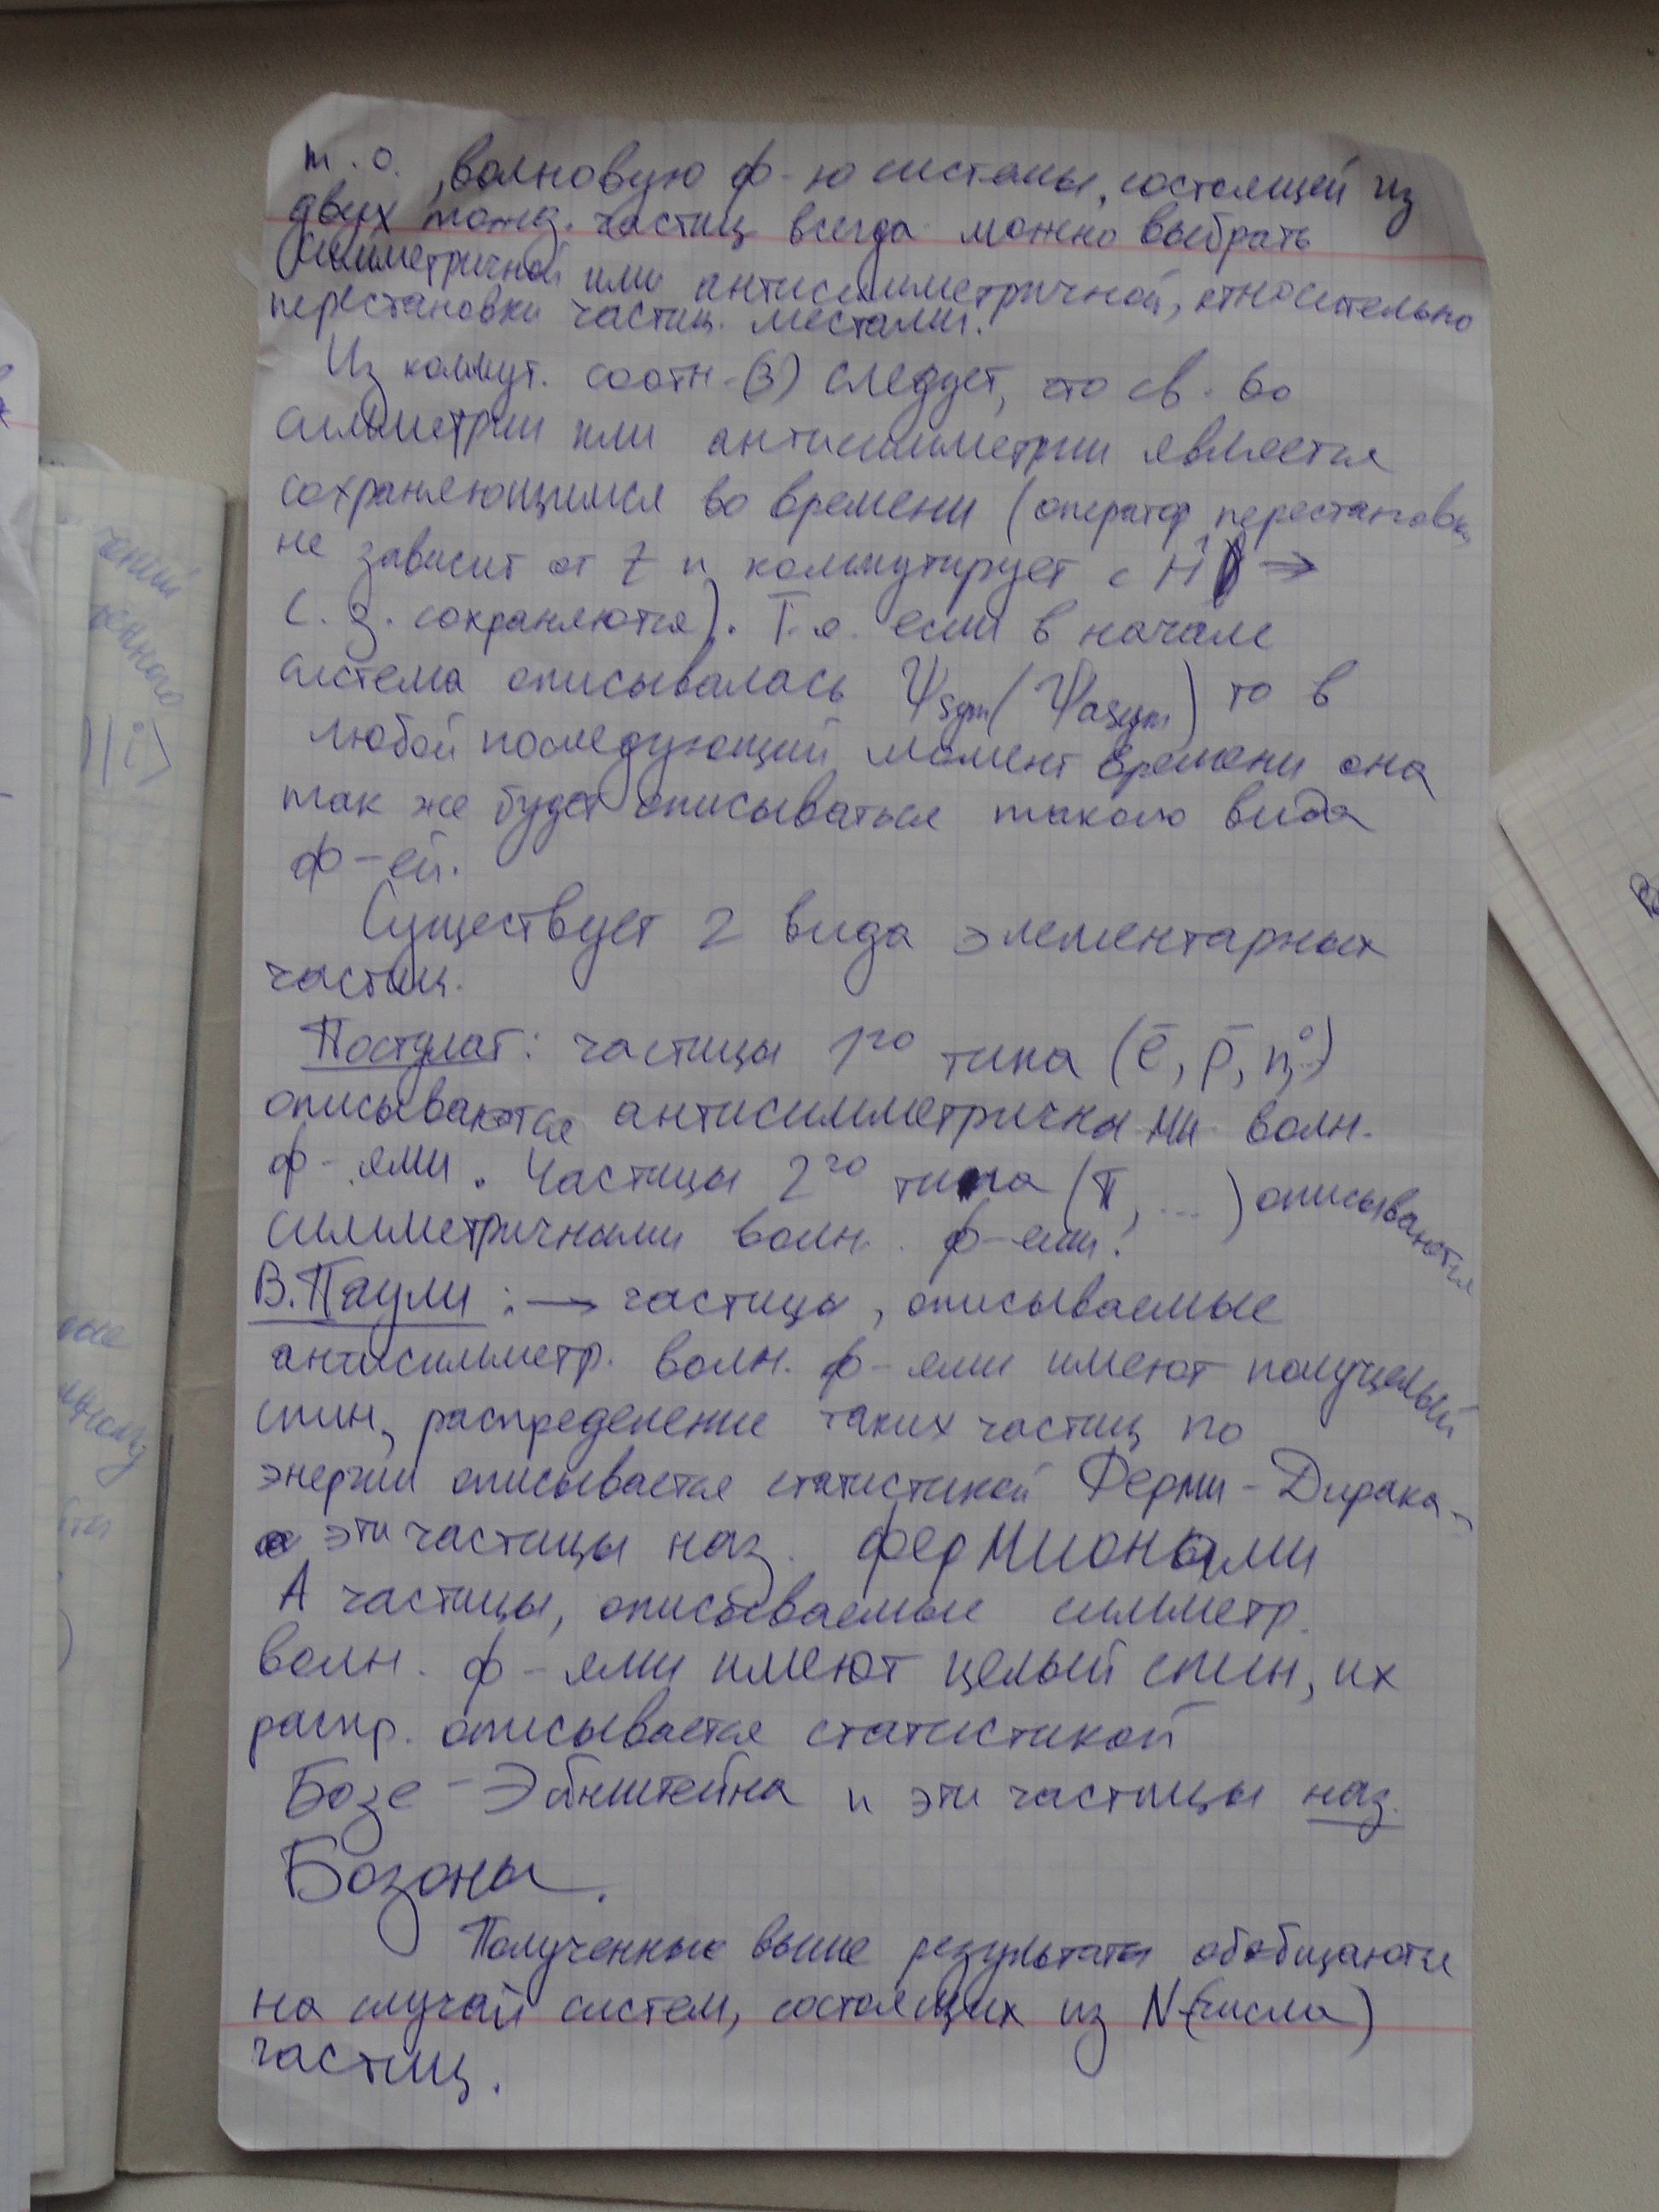 т.о., волновую ф-ю системы, состоящей из
двух тожд. частиц всегда можно выбрать
симметричной или антисимметричной, относительно
перестановки частиц местами.
Из коммут. соотн-(3) следует, что св-во
симметрии или антисимметрии является
сохраняющимся во времени (оператор перестановки
не зависит от t и коммутирует с Ĥ →
с.з. сохраняются). Т.е. если в начале
система описывалась Ψsym (Ψasym) то в
любой последующий момент времени она
так же будет описываться такого вида
ф-ей.
Существует 2 вида элементарных
частиц.
Постулат: частицы 1го типа (e̅, p̅, n°..)
описываются антисимметричны-ми волн.
ф-ями. Частицы 2го типа (π, ...) описываются
симметричными волн. ф-ями.
В.Паули: → частицы, описываемые
антисимметр. волн. ф-ями имеют полуцелый
спин, распределение таких частиц по
энергии описывается статистикой Ферми-Дирака -
эти частицы наз. фермионами
А частицы, описываемые симметр.
волн. ф-ями имеют целый спин, их
распр. описывается статистикой
Бозе-Эйнштейна и эти частицы наз.
Бозоны.
Полученные выше результаты обобщаются
на случай систем, состоящих из N-(числа)
частиц.
чений
енного
)|i>